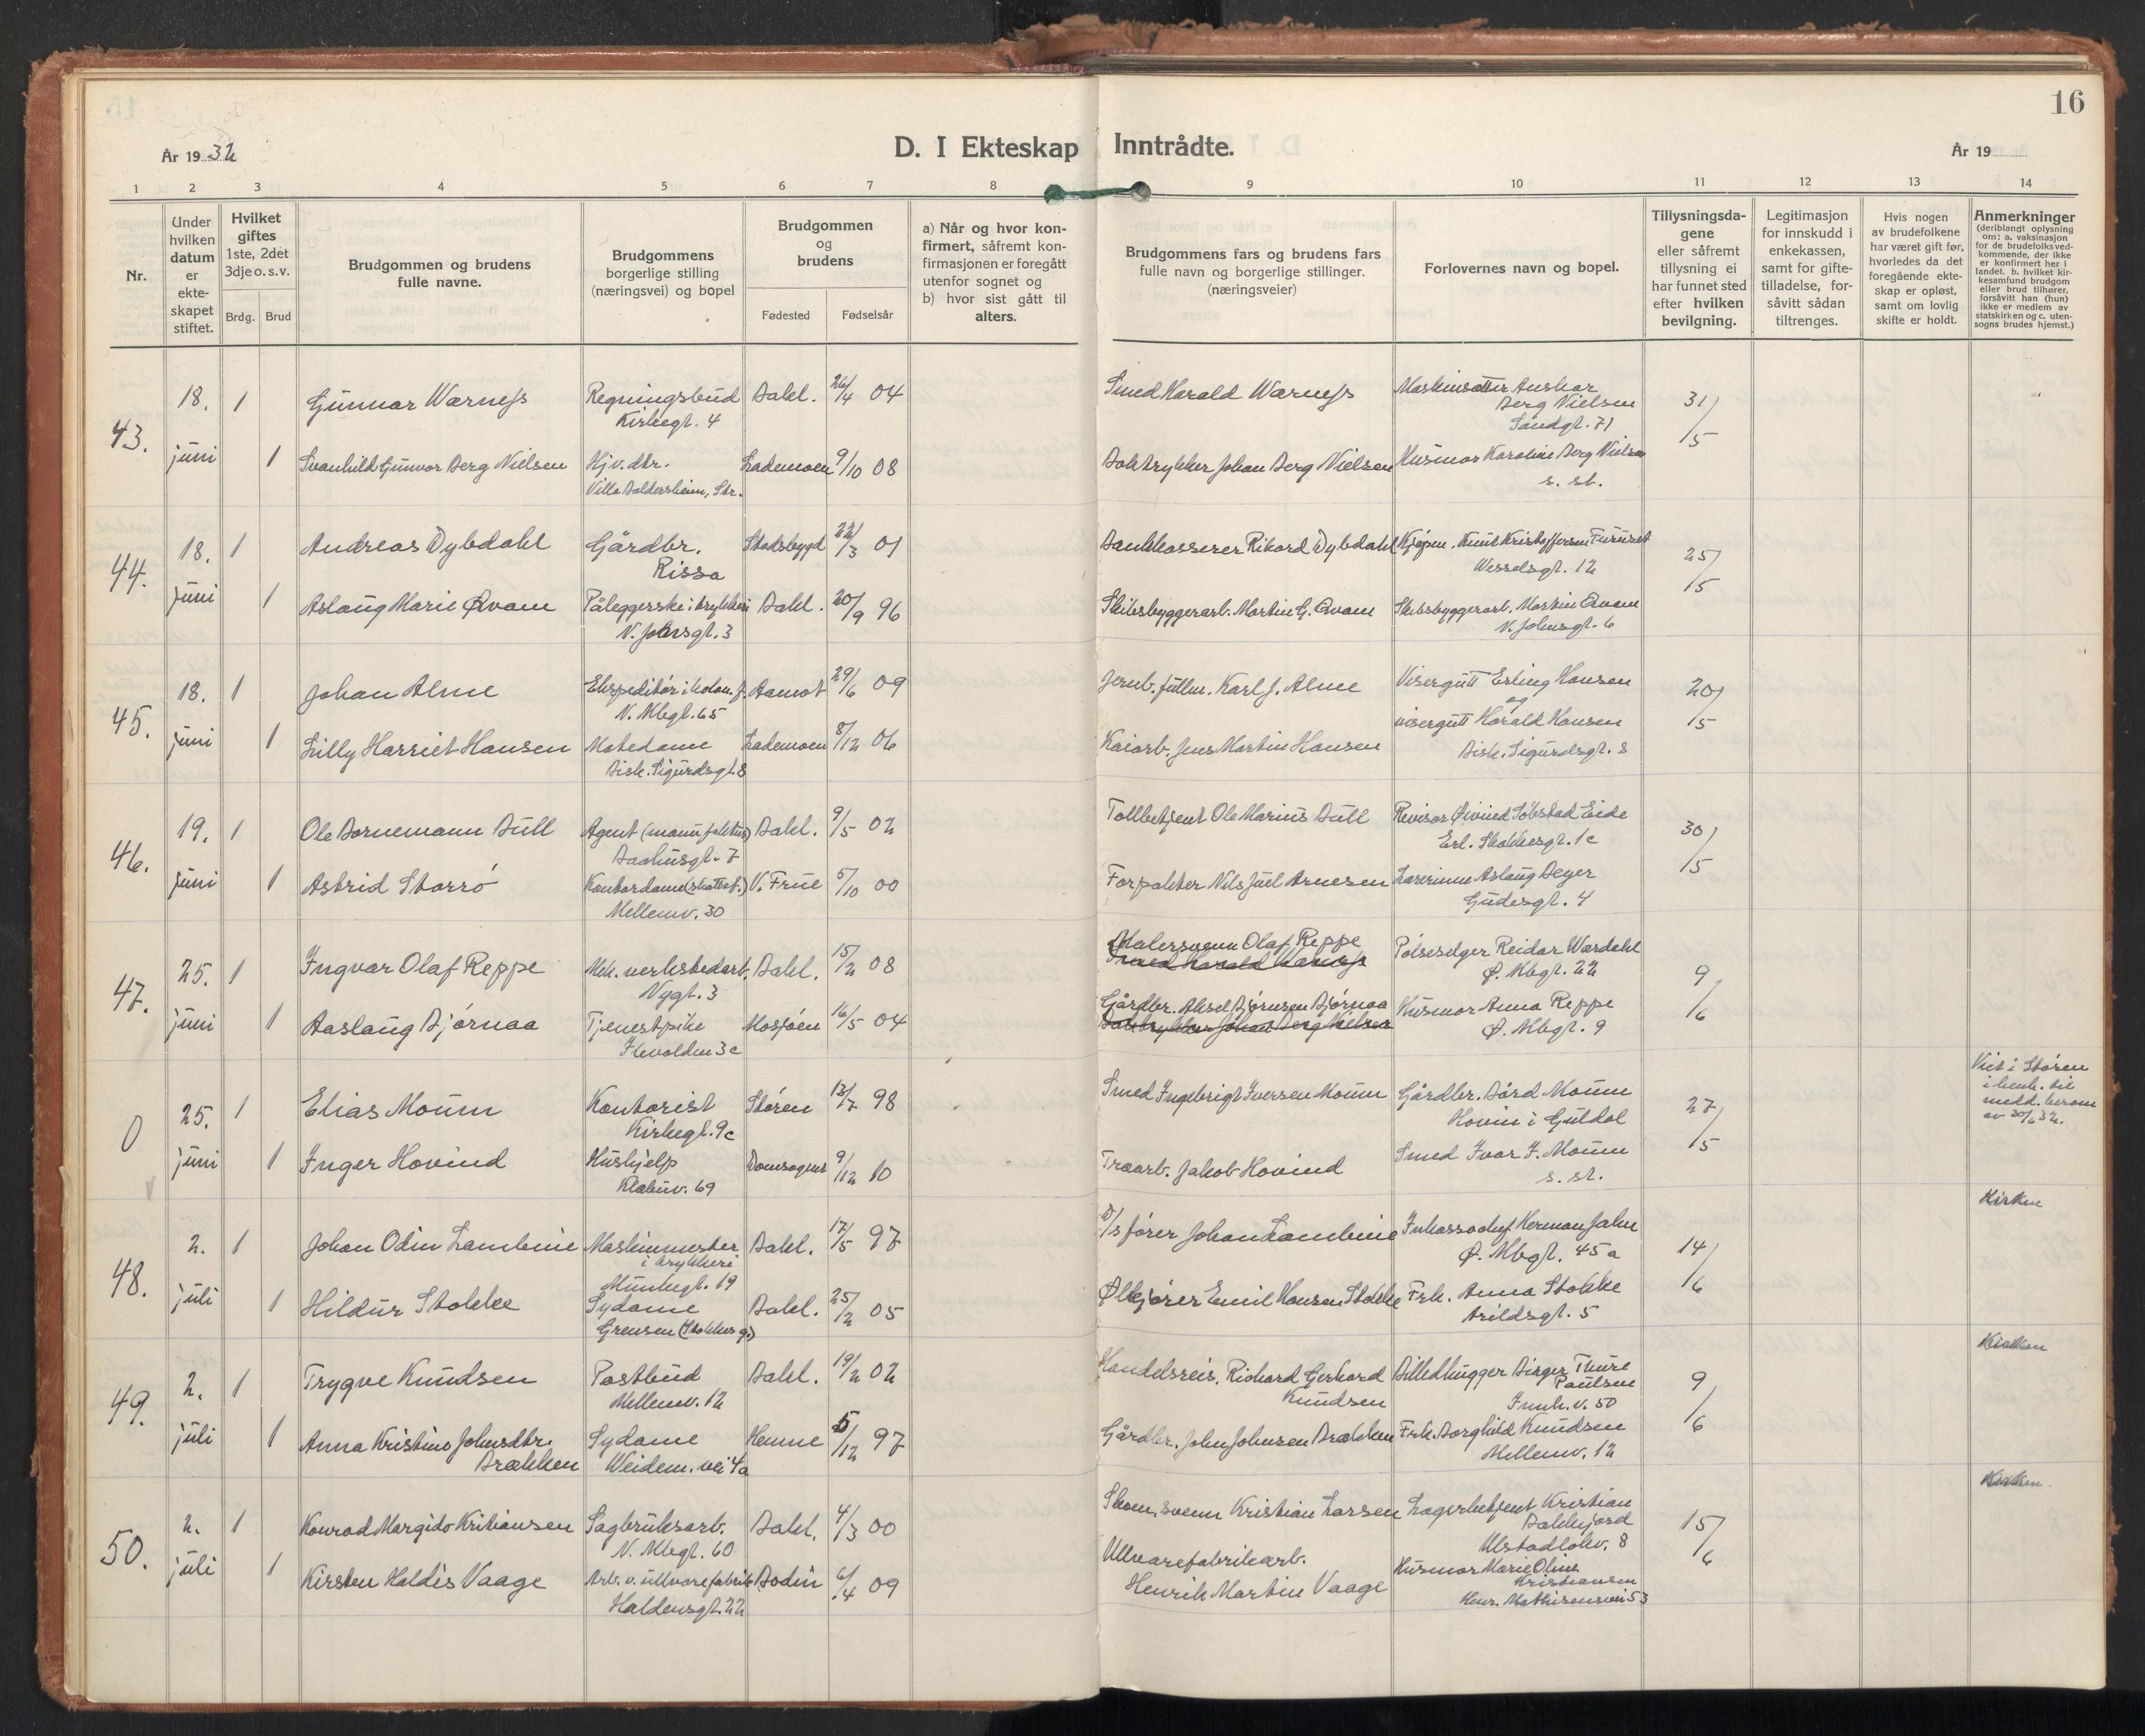 16
År 1932
D. I Ekteskap Inntrådte.
År 19
1 2 3 4 5 6 7 8 9 10 11 12 13 14
Nr.
Under hvilken datum er ekteskapet stiftet.
Hvilket giftes 1ste, 2det 3dje o. s. v.
Brdg. Brud
Brudgommen og brudens fulle navne.
Brudgommens borgerlige stilling (næringsvei) og bopel
Brudgommen og brudens
Fødested Fødselsår
a) Når og hvor konfirmert, såfremt konfirmasjonen er foregått utenfor sognet og
b) hvor sist gått til alters.
Brudgommens fars og brudens fars fulle navn og borgerlige stillinger. (næringsveier)
Forlovernes navn og bopel.
Tillysningsdagene eller såfremt tillysning ei har funnet sted efter hvilken bevilgning.
Legitimasjon for innskudd i enkekassen, samt for giftetilladelse, forsåvitt sådan tiltrenges.
Hvis nogen av brudefolkene har været gift før, hvorledes da det foregående ekteskap er opløst, samt om lovlig skifte er holdt.
Anmerkninger (deriblandt oplysning om: a. vaksinasjon for de brudefolks vedkommende, der ikke er konfirmert her i landet. b. hvilket kirkesamfund brudgom eller brud tilhører, forsåvitt han (hun) ikke er medlem av statskirken og c. utensogns brudes hjemst.)
43. 18. juni
1 Gunnar Warness Regningsbud Bakl. 26/4 04 Smed Harald Warness Maskinsetter Anskar Berg Nielsen 31/5
Kirkegt. 4 Sandgt. 71
1 Svanhild Gunvor Berg Nielsen Hjv. dtr. Lademoen 9/10 08 Boktrykker Johan Berg Nielsen Husmor Karoline Berg Nielsen
Villa Baldersheim, Str. s. st.
44. 18. juni
1 Andreas Dybdahl Gårdbr. Stadsbygd 22/3 01 Bankkasserer Rikard Dybdahl Kjøpm. Knut Kristoffersen Furuset 25/5
Rissa Wesselsgt. 12
1 Aslaug Marie Qvam Påleggerske i trykkeri Bakl. 20/9 96 Skibsbyggerarb. Martin G. Qvam Skibsbyggerarb. Martin Qvam
N. Johnsgt. 3 N. Johnsgt. 6
45. 18. juni
1 Johan Alme Ekspeditør i kolon. f. Aamot 29/6 09 Jernb. fullm. Karl J. Alme Visergutt Erling Hansen 20/5
N. Mbgt. 65 og
1 Lilly Harriet Hansen Matedame Lademoen 8/12 06 Kaiarb. Jens Martin Hansen visergutt Harald Hansen
Bisk. Sigurdsgt. 8 Bisk. Sigurdsgt. 8
46. 19. juni
1 Ole Bornemann Bull Agent (manufaktur) Bakl. 9/5 02 Tollbetjent Ole Marius Bull Revisor Øivind Solstad Eide 30/5
Baahusgt. 7 Erl. Skakkesgt. 1c
1 Astrid Storrø Kontordame (skattef.) V. Frue 5/10 00 Forpakter Nils Juel Arnesen Lærerinne Aslaug Beyer
Mellemv. 30 Gudesgt. 4
47. 25. juni
1 Ingvar Olaf Reppe Mek. verkstedarb. Bakl. 15/2 08 Malersvenn Olaf Reppe Pølseselger Reidar Wardahl 9/6
Smed Harald Warness
Nygt. 3 Ø. Mbgt. 22
1 Aaslaug Bjørnaa Tjenestpike Mosjøen 16/5 04 Gårdbr. Aksel Bjørnsen Bjørnaa Husmor Anna Reppe
Boktrykker Johan Berg Nielsen
Ilevolden 3c Ø. Mbgt. 9
0 25. juni
1 Elias Moum Kontorist Støren 13/7 98 Smed Ingebrigt Iversen Moum Gårdbr. Bård Moum 27/5 Viet i Støren i henh. til medd. herom av 30/6 32.
Kirkegt. 9c Hovin i Guldal
1 Inger Hovind Hushjelp Domsogns 9/12 10 Træarb. Jakob Hovind Smed Ivar I. Moum
Klæbuv. 69 s. st.
48. 2. juli
1 Johan Odin Lambine Maskinmester i trykkeri Bakl. 17/5 97 D/s fører Johan Lambine Inkassochef Herman Jahn 14/6 Kirken
Munkegt. 19 Ø. Mbgt. 45a
1 Hildur Stokke Sydame Bakl. 25/2 05 Ølkjører Emil Hansen Stokke Frk. Anna Stokke
Grensen (Stokkes g.) Arildsgt. 5
49. 2. juli
1 Trygve Knudsen Postbud Bakl. 19/2 02 Handelsreis. Richard Gerhard Knudsen Billedhugger Birger Thure Paulsen 9/6 Kirken
Mellemv. 12 Innh. v. 50
1 Anna Kristine Johnsdtr. Brækken Sydame Hemne 5/12 97 Gårdbr. John Johnsen Brækken Frk. Borghild Knudsen
Weidem. vei 4a Mellemv. 12
50. 2. juli
1 Konrad Margido Kristiansen Sagbruksarb. Bakl. 4/3 00 Skom. svenn Kristian Larsen Lagerbetjent Kristian Bakkejord 15/6 Kirken.
N. Mbgt. 60 Ulstadløkv. 8
1 Kirsten Haldis Vaage Arb. v. ullvarefabrik Bodin 6/4 09 Ullvarefabrikarb. Henrik Martin Vaage Husmor Marie Oline Kristiansen
Haldensgt. 22 Henr. Mathisensvei 53